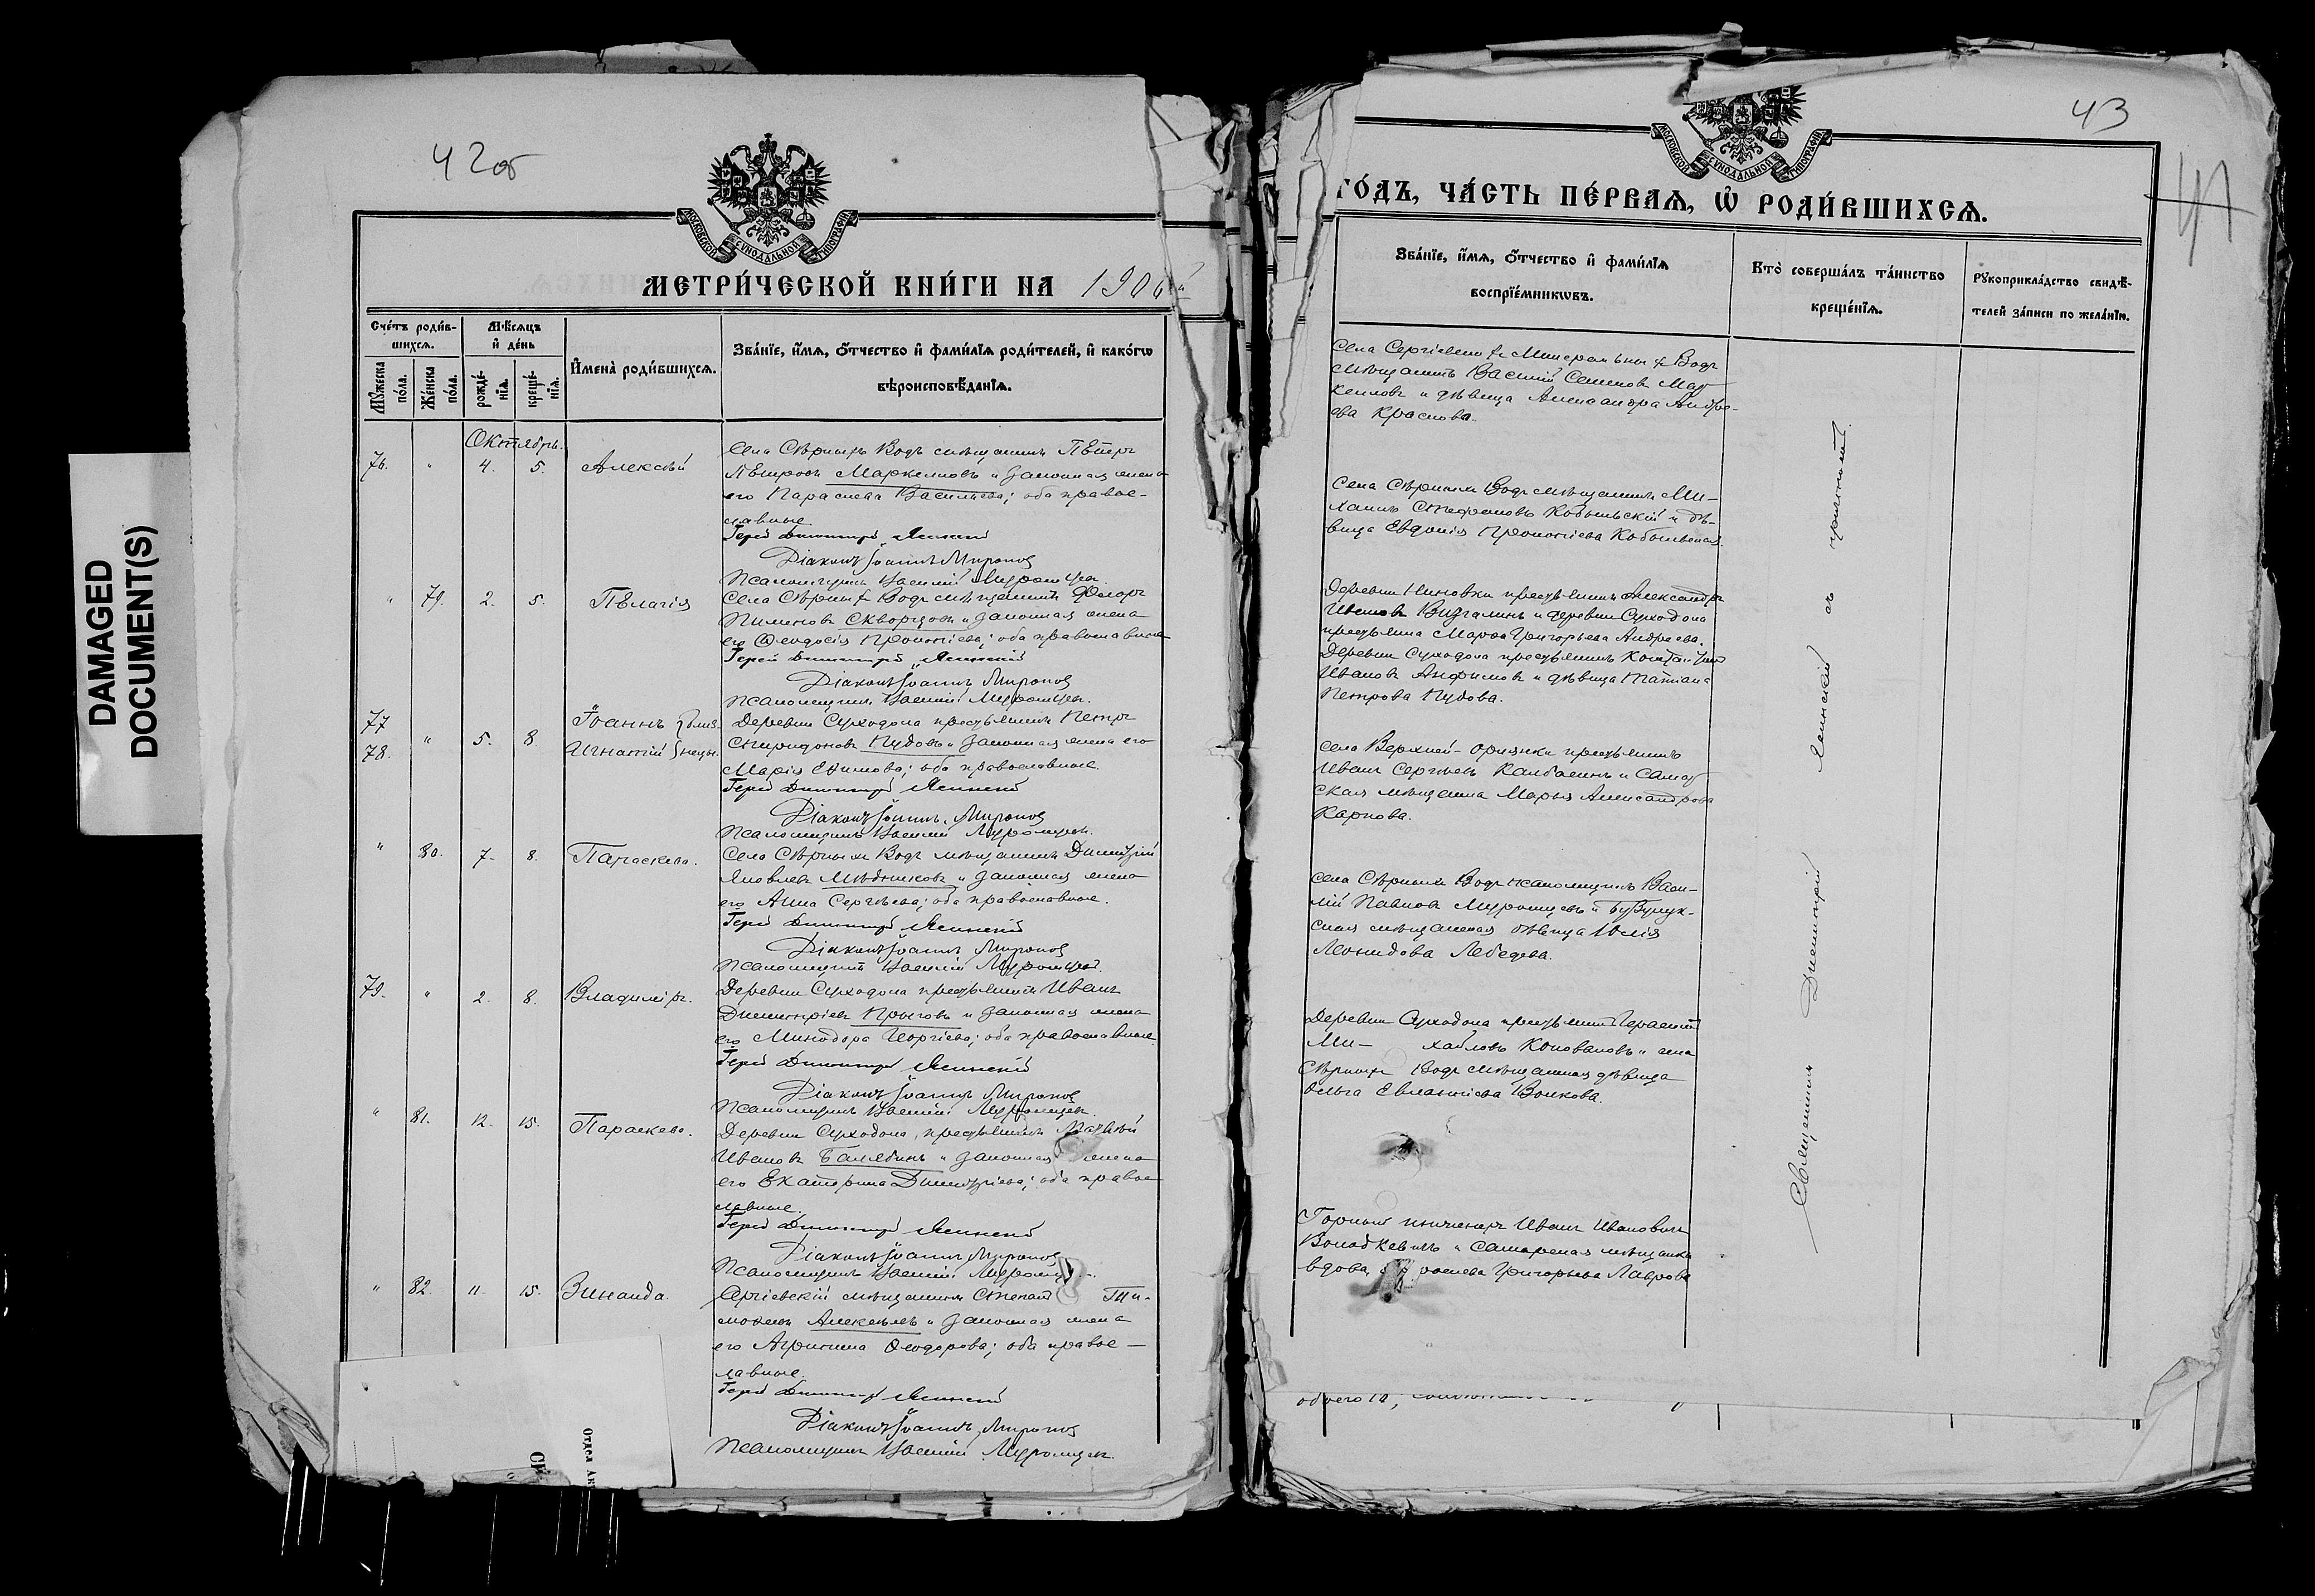 DAMAGED
DOCUMENT(S)
42об
МОСКОВСКОЙ СѴНОДАЛЬНОЙ ТИПОГРАФІИ
МЕТРИ́ЧЕСКОЙ КНИ́ГИ НА 190
Сче́тъ роди́в-
шихся.
Мѣ́сяцъ
и҆ де́нь
Мꙋ́жеска
по́ла.
Же́нска
по́ла.
рожде́-
нїѧ.
креще́-
нїѧ.
И҆мена̀ роди́вшихсѧ.
Зва́нїе, и҆́мѧ, ѻ҆́тчество и҆ фами́лїѧ роди́телей, и҆ како́гѡ
вѣроисповѣ́данїѧ.
Октябрь.
76. " 4. 5. Алексѣй
Села Сѣрныхъ Водъ мѣщанинъ Петръ
Петровъ Маркеловъ и законная жена
его Параскева Васильева; оба право-
славные.
Іерей Димитрій Ясинскій
Діаконъ Іоаннъ Миропов
Псаломщикъ Василій Муромцевъ.
" 79. 2. 5. Пелагія
Села Сѣрныхъ Водъ мѣщанинъ Федоръ
Пименовъ Скворцовъ и законная жена
его Ѳеодосія Прокопіева; оба православные
Іерей Димитрій Ясинскій
Діаконъ Іоаннъ Миропов
Псаломщикъ Василій Муромцевъ.
77
78. " 5. 8. Іоаннъ
Игнатій } близ-
нецы.
Деревни Суходола крестьянинъ Петръ
Спиридоновъ Пудовъ и законная жена его
Марія Екимова; оба православные.
Іерей Димитрій Ясинскій
Діаконъ Іоаннъ Миропов
Псаломщикъ Василій Муромцевъ.
" 80. 7. 8. Параскева.
Села Сѣрныхъ Водъ мѣщанинъ Димитрій
Яковлевъ Мѣдниковъ и законная жена
его Анна Сергѣева; оба православные.
Іерей Димитрій Ясинскій
Діаконъ Іоаннъ Миропов
Псаломщикъ Василій Муромцевъ.
79. " 2. 8. Владиміръ.
Деревни Суходола крестьянинъ Иванъ
Димитріевъ и законная жена
его Минодора Георгіева; оба православные.
Іерей Димитрій Ясинскій
Діаконъ Іоаннъ Миропов
Псаломщикъ Василій Муромцевъ.
" 81. 12. 15. Параскева.
Деревни Суходола, крестьянинъ Матвѣй
Ивановъ и законная жена
его Екатерина Димитріева; оба право-
славные.
Іерей Димитрій Ясинскій
Діаконъ Іоаннъ Миропов
Псаломщикъ Василій
" 82. 11. 15. Зинаида.
Сергіевскій мѣщанинъ Степанъ Ти-
мофеевъ Алексѣевъ и законная жена
его Агрипина Ѳеодорова; оба право-
славные.
Іерей Димитрій Ясинскій
Діаконъ Іоаннъ Миропов
Псаломщикъ Василій Муромцевъ.
43
МОСКОВСКОЙ СѴНОДАЛЬНОЙ ТИПОГРАФІИ
ГО́ДЪ, ЧА́СТЬ ПЕ́РВАѦ, Ѡ҆ РОДИ́ВШИХСѦ.
Зва́нїе, и҆́мѧ, ѻ҆́тчество и҆ фами́лїѧ
воспрїе́мникѡвъ.
Кто̀ соверша́лъ та́инство
креще́нїѧ.
Рꙋкоприкла́дство свидѣ́-
телей за́писи по жела́нїю.
Села Сергіевскихъ Минеральныхъ Водъ
мѣщанинъ Василій Семеновъ Мар-
келовъ и дѣвица Александра Андре-
ева Краснова.
Села Сѣрныхъ Водъ мѣщанинъ Ми-
хаилъ Стефановъ Кобыльскій и дѣ-
вица Евдокія Прокопіева Кобыльская.
Деревни крестьянинъ Александръ
Ивановъ и деревни Суходола
крестьянка Марфа Григорьева Андреева.
Деревни Суходола крестьянинъ Константинъ
Ивановъ Анфимовъ и дѣвица Татіана
Петрова Пудова.
Села Верхней-Орлянки крестьянинъ
Иванъ Сергѣевъ и Самар-
ская мѣщанка Марья Александрова
Карпова.
Села Сѣрныхъ Водъ псаломщикъ Васи-
лій Павловъ Муромцевъ и Бузулук-
ская мѣщанская дѣвица Юлія
Леонидова Лебедева.
Деревни Суходола крестьянинъ Герасимъ
Ми- хайловъ Коноваловъ и села
Сѣрныхъ Водъ мѣщанская дѣвица
Ольга Евлампіева Волкова.
Горный инженеръ Иванъ Ивановичъ
и Самарская мѣщанка
вдова Григорьева Лаврова
Священникъ Димитрій Ясинскій съ причтомъ.